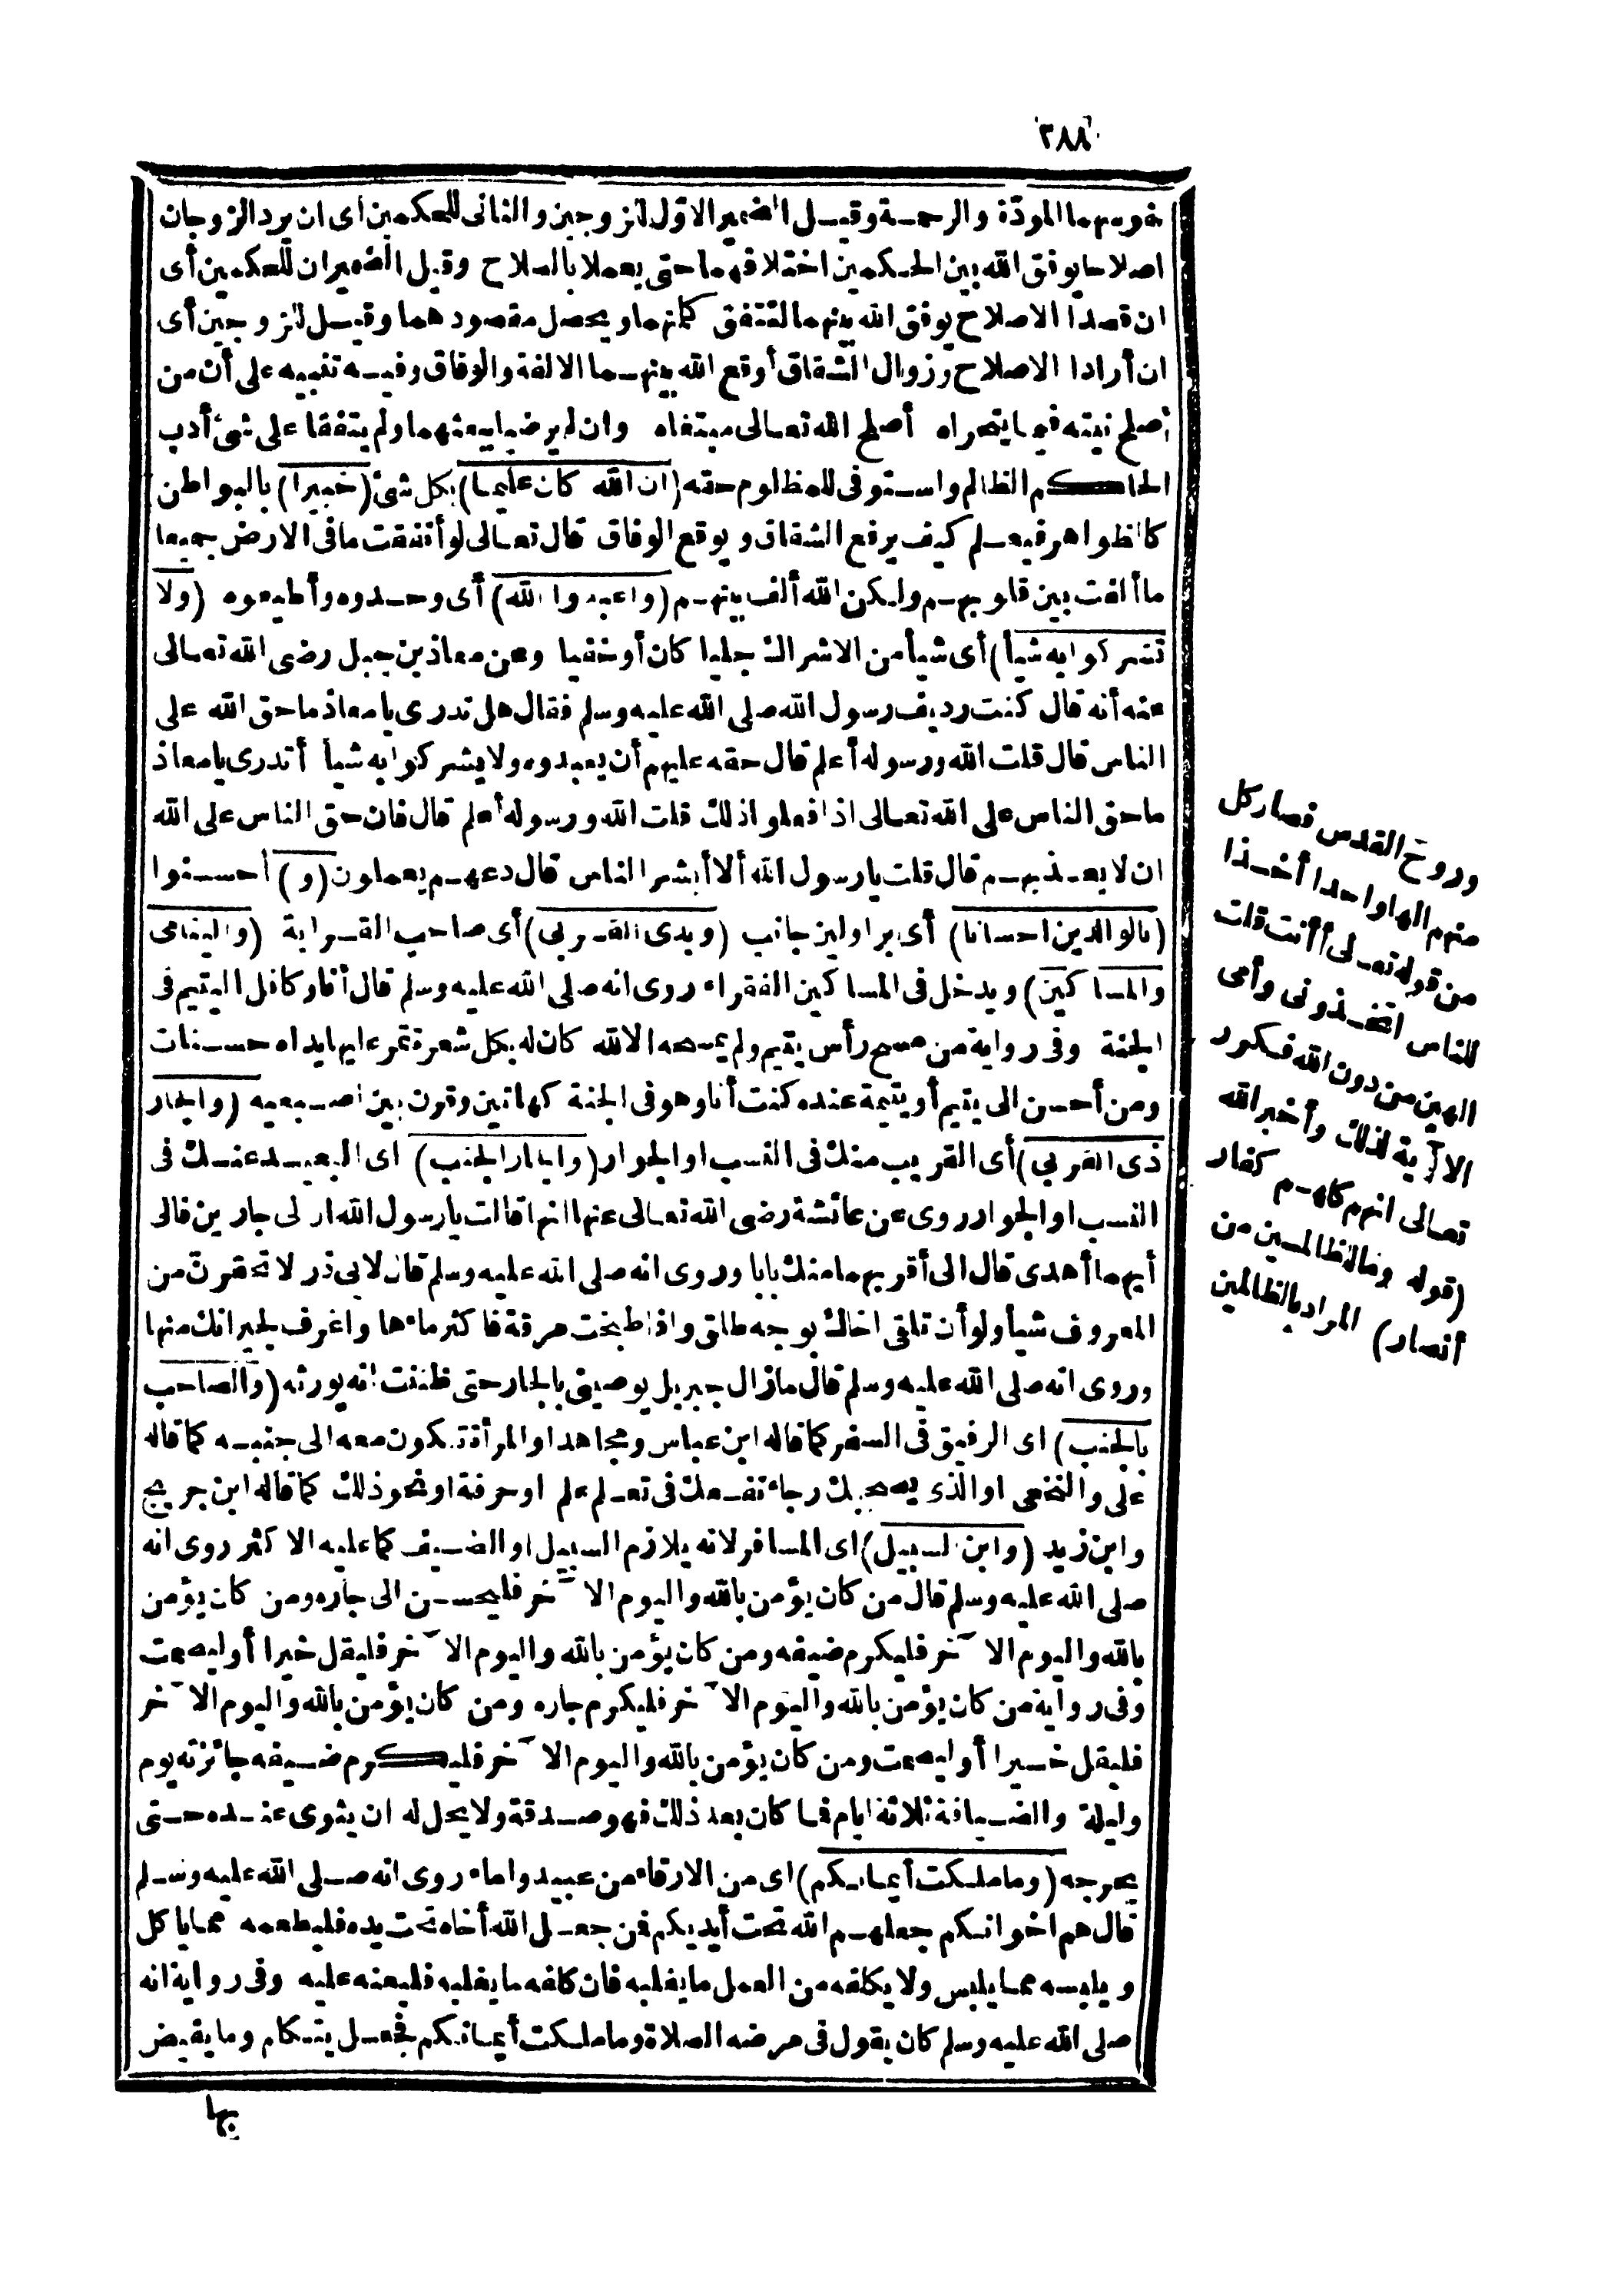 ٢٨٨
نفوسهما المودّة والرحمة وقيل الضمير الاوّل للزوجين والثانى للحكمين أى ان يرد الزوجان
اصلاحا يوفق الله بين الحكمين اختلافهما حتى يعملا بالصلاح وقيل الضميران للحكمين أى
ان قصدا الاصلاح يوفق الله بينهما لتتفق كلمتهما ويحصل مقصودهما وقيل للزوجين أى
ان أرادا الاصلاح وزوال الشقاق أوقع الله بينهما الالفة والوفاق وفيه تنبيه على أن من
أصلح نيته فيما يتحراه أصلح الله تعالى مبتغاه وان لم يرضيا ببعثهما ولم يتفقا على شئ أدب
الحاكم الظالم واستوفى للمظلوم حقه (ان الله كان عليما) بكل شئ (خبيرا) بالبواطن
كالظواهر فيعلم كيف يرفع الشقاق ويوقع الوفاق قال تعالى لو أنفقت ما فى الارض جميعا
ما ألفت بين قلوبهم ولكن الله ألف بينهم (واعبدوا الله) أى وحدوه وأطيعوه (ولا
تشركوا به شيأ) أى شيأ من الاشراك جليا كان أو خفيا وعن معاذ بن جبل رضى الله تعالى
عنه أنه قال كنت رديف رسول الله صلى الله عليه وسلم فقال هل تدرى يا معاذ ما حق الله على
الناس قال قلت الله ورسوله أعلم قال حقه عليهم أن يعبدوه ولا يشركوا به شيأ أتدرى يا معاذ
ما حق الناس على الله تعالى اذا فعلوا ذلك قلت الله ورسوله أعلم قال فان حق الناس على الله
ان لا يعذبهم قال قلت يا رسول الله ألا أبشر الناس قال دعهم يعملون (و) أحسنوا
(بالوالدين احسانا) أى برا ولين جانب (وبذى القربى) أى صاحب القرابة (واليتامى
والمساكين) ويدخل فى المساكين الفقراء روى انه صلى الله عليه وسلم قال أنا وكافل اليتيم فى
الجنة وفى رواية من مسح رأس يتيم ولم يمسحه الا لله كان له بكل شعرة تمر عليها يداه حسنات
ومن أحسن الى يتيم أو يتيمة عنده كنت أنا وهو فى الجنة كهاتين وقرن بين اصبعيه (والجار
ذى القربى) أى القريب منك فى النسب او الجوار (والجار الجنب) اى البعيد عنك فى
النسب او الجوار روى عن عائشة رضى الله تعالى عنها انها قالت يا رسول الله ان لى جارين فالى
أيهما أهدى قال الى أقربهما منك بابا وروى انه صلى الله عليه وسلم قال لابى ذر لا تحقرنّ من
المعروف شيأ ولو أن تلقى اخاك بوجه طلق واذا طبخت مرقة فاكثر ماءها واغرف لجيرانك منها
وروى انه صلى الله عليه وسلم قال ما زال جبريل يوصينى بالجار حتى ظننت انه يورثه (والصاحب
بالجنب) اى الرفيق فى السفر كما قاله ابن عباس ومجاهد او المرأة تكون معه الى جنبه كما قاله
على والنخعى او الذى يصحبك رجاء نفعك فى تعلم علم او حرفة او نحو ذلك كما قاله ابن جريج
وابن زيد (وابن السبيل) اى المسافر لانه يلازم السبيل او الضيف كما عليه الاكثر روى انه
صلى الله عليه وسلم قال من كان يؤمن بالله واليوم الآخر فليحسن الى جاره ومن كان يؤمن
بالله واليوم الآخر فليكرم ضيفه ومن كان يؤمن بالله واليوم الآخر فليقل خيرا أو ليصمت
وفى رواية من كان يؤمن بالله واليوم الآخر فليكرم جاره ومن كان يؤمن بالله واليوم الآخر
فليقل خيرا أو ليصمت ومن كان يؤمن بالله واليوم الآخر فليكرم ضيفه جائزته يوم
وليلة والضيافة ثلاثة ايام فما كان بعد ذلك فهو صدقة ولا يحل له ان يثوى عنده حتى
يحرجه (وما ملكت أيمانكم) اى من الارقاء من عبيد واماء روى انه صلى الله عليه وسلم
قال هم اخوانكم جعلهم الله تحت أيديكم فمن جعل الله أخاه تحت يده فليطعمه مما يأكل
ويلبسه مما يلبس ولا يكلفه من العمل ما يغلبه فان كلفه ما يغلبه فليعنه عليه وفى رواية انه
صلى الله عليه وسلم كان يقول فى مرضه الصلاة وما ملكت أيمانكم فجعل يتكلم وما يفيض
بها
وروح القدس فصار كل
منهم الها واحدا أخذا
من قوله تعالى أأنت قلت
للناس اتخذونى وأمى
الهين من دون الله فكرر
الآية لذلك وأخبر الله
تعالى انهم كلهم كفار
(قوله وما للظالمين من
أنصار) المراد بالظالمين